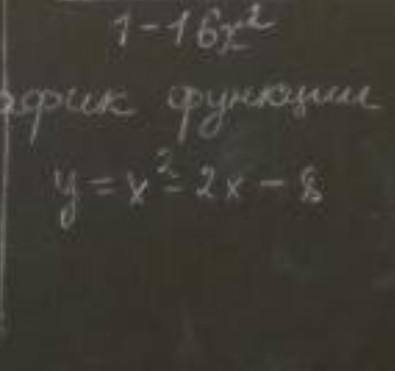 1-16x²
афик функции
y = x² - 2x - 8